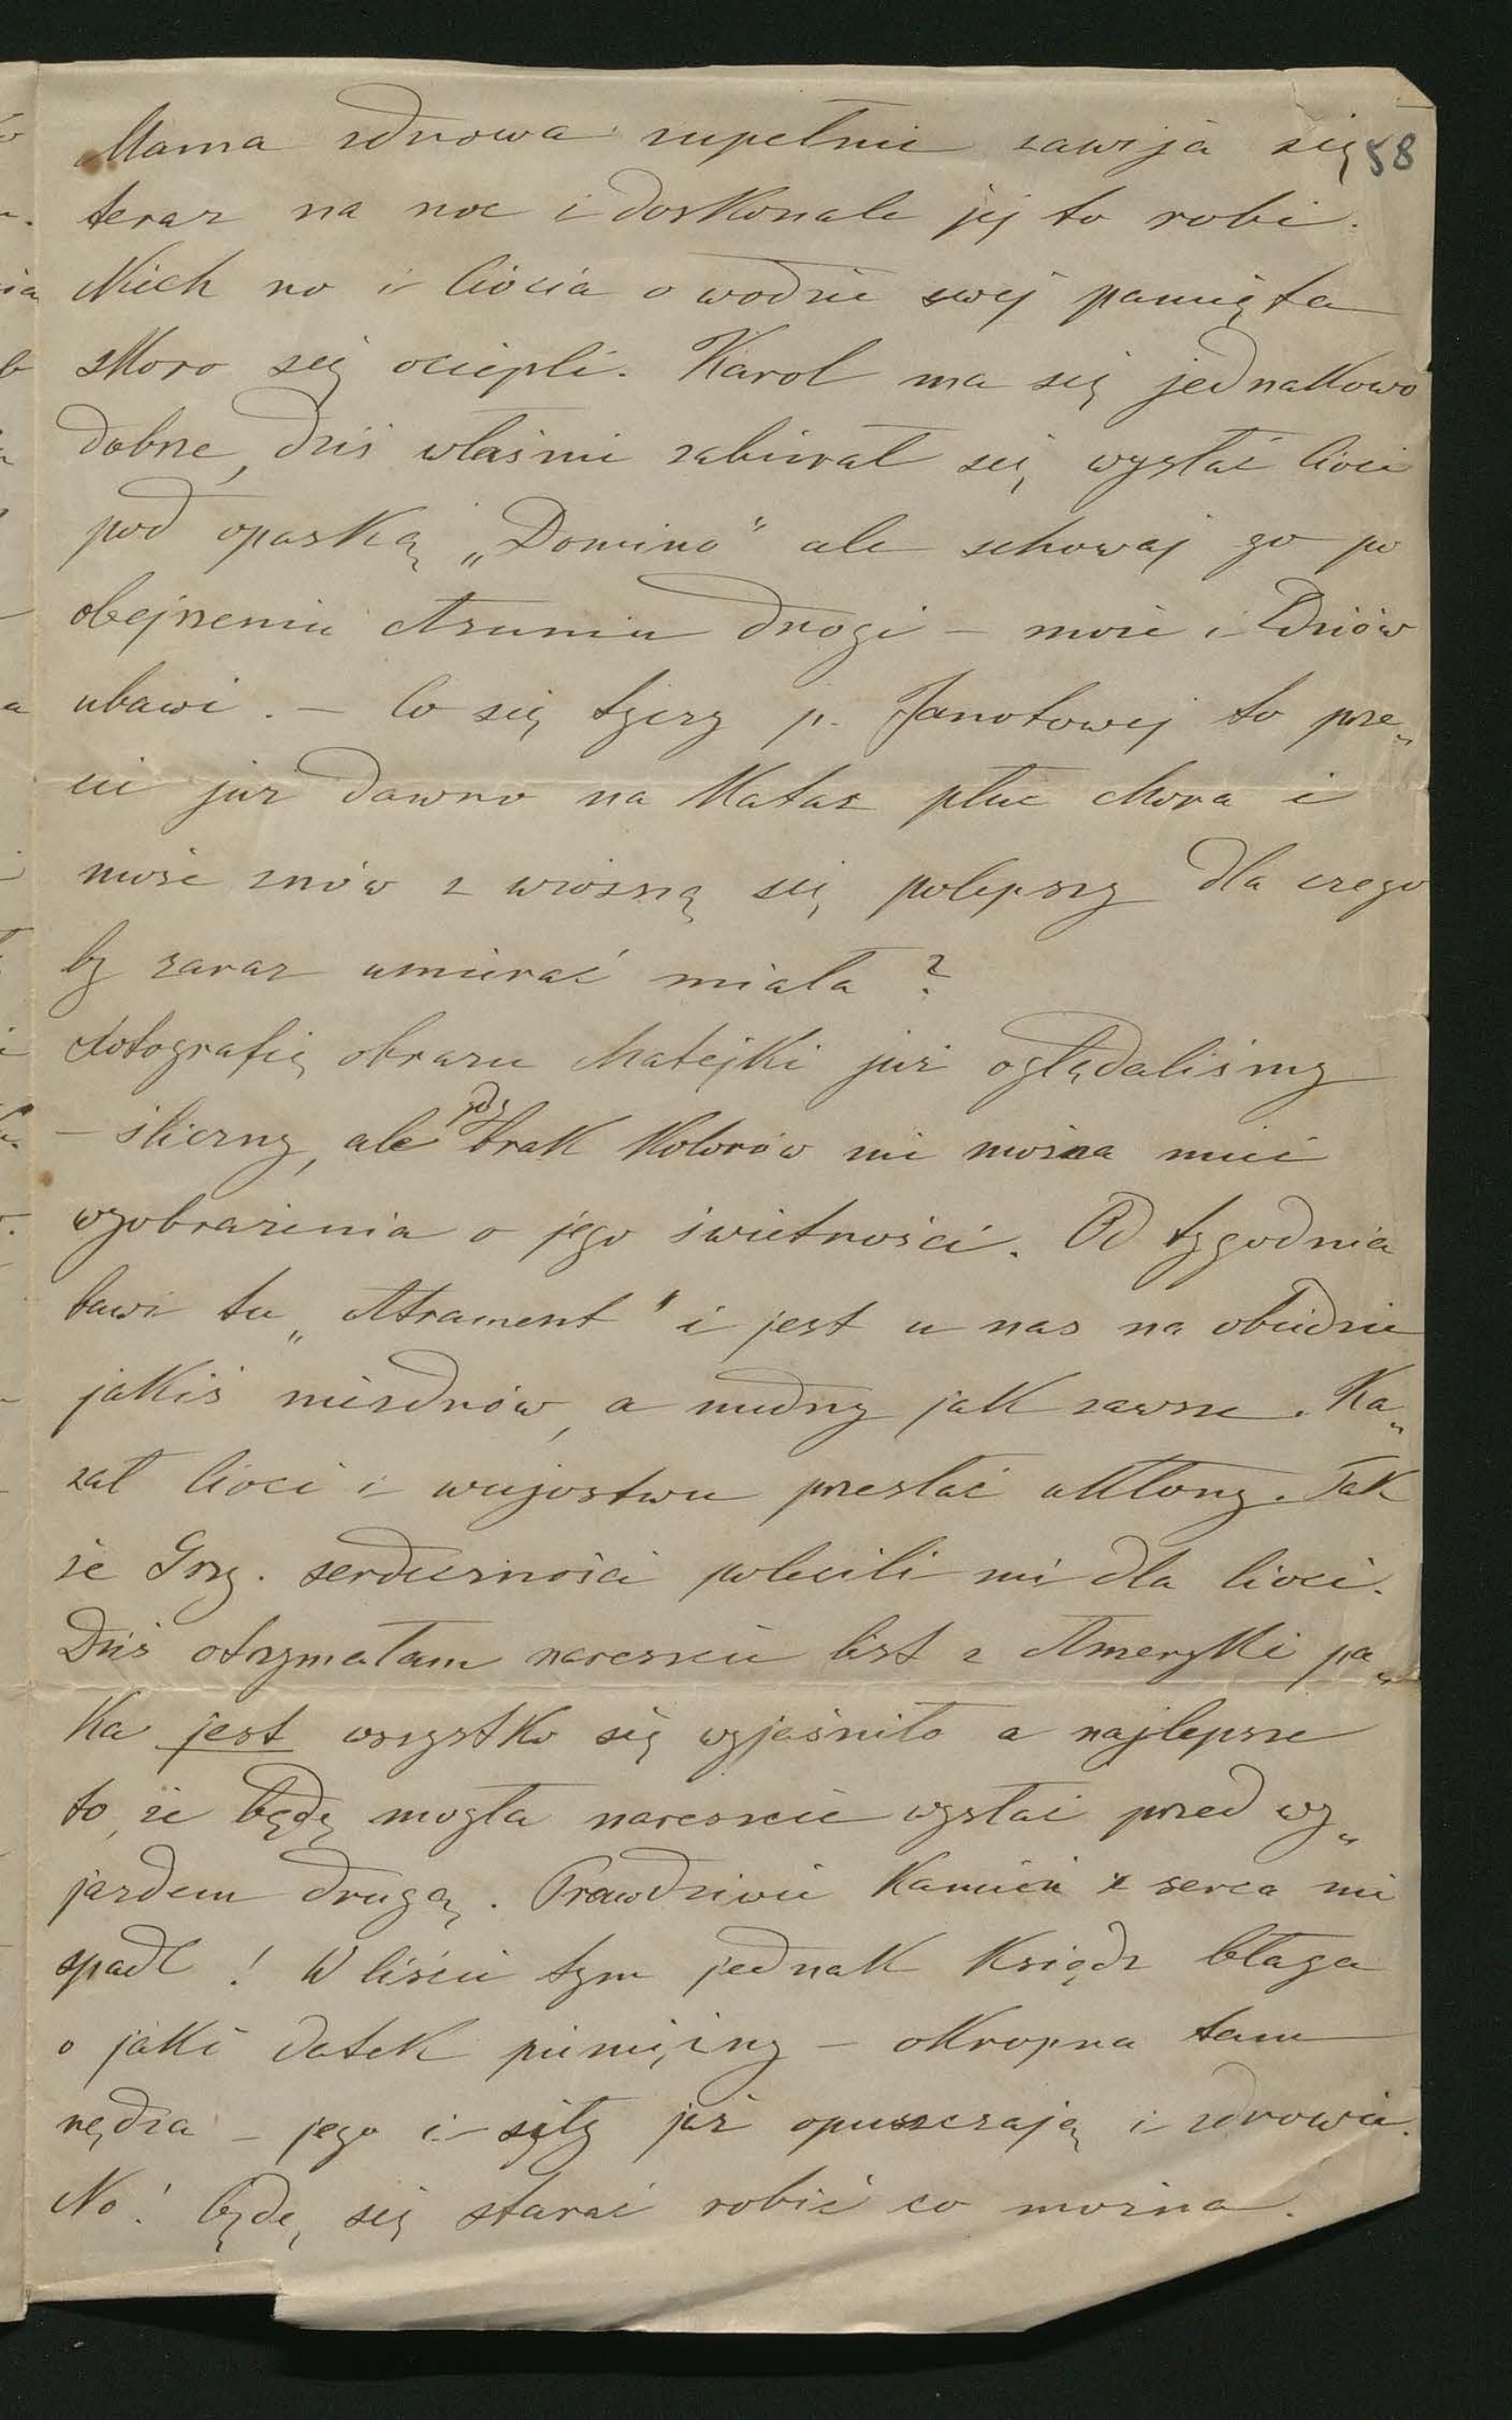 Mama zdrowa zupełnie zawija się 58
teraz na noc i doskonale jej to robi.
Niech no i Ciocia o wodzie swej pamięta
skoro się ociepli. Karol ma się jednakowo
dobrze, dziś właśnie zabierał się wysłać Cioci
pod opaską „Domino" ale schowaj go po
obejrzeniu drogi – może i Edziów
ubawi. – Co się tyczy p. Janotowej to prze„
cie już dawno na Katar płuc chora i
może znów z wiosną się polepszy dla czego
by zaraz umierać miała?
Fotografię obrazu Matejki już oglądaliśmy
– śliczny, ale gdy brak kolorów nie można mieć
wyobrażenia o jego świetności. Od tygodnia
bawi tu „Atrament" i jest u nas na obiedzie
jakiś niezdrów, a nudny jak zawsze. Ka„
zał Cioci i wujostwu przesłać ukłony. Tak
że Grz. serdeczności polecili mi dla Cioci.
Dziś otrzymałam nareszcie list z Ameryki pa„
ka jest wszystko się wyjaśniło a najlepsze
to, że będę mogła nareszcie wysłać przed wy„
jazdem drugą. Prawdziwie Kamień z serca mi
spadł! W liście tym jednak Ksiądz błaga
o jaki datek pieniężny – okropna tam
nędza – jego i siły już opuszczają i zdrowie.
No! będę się starać robić co można.